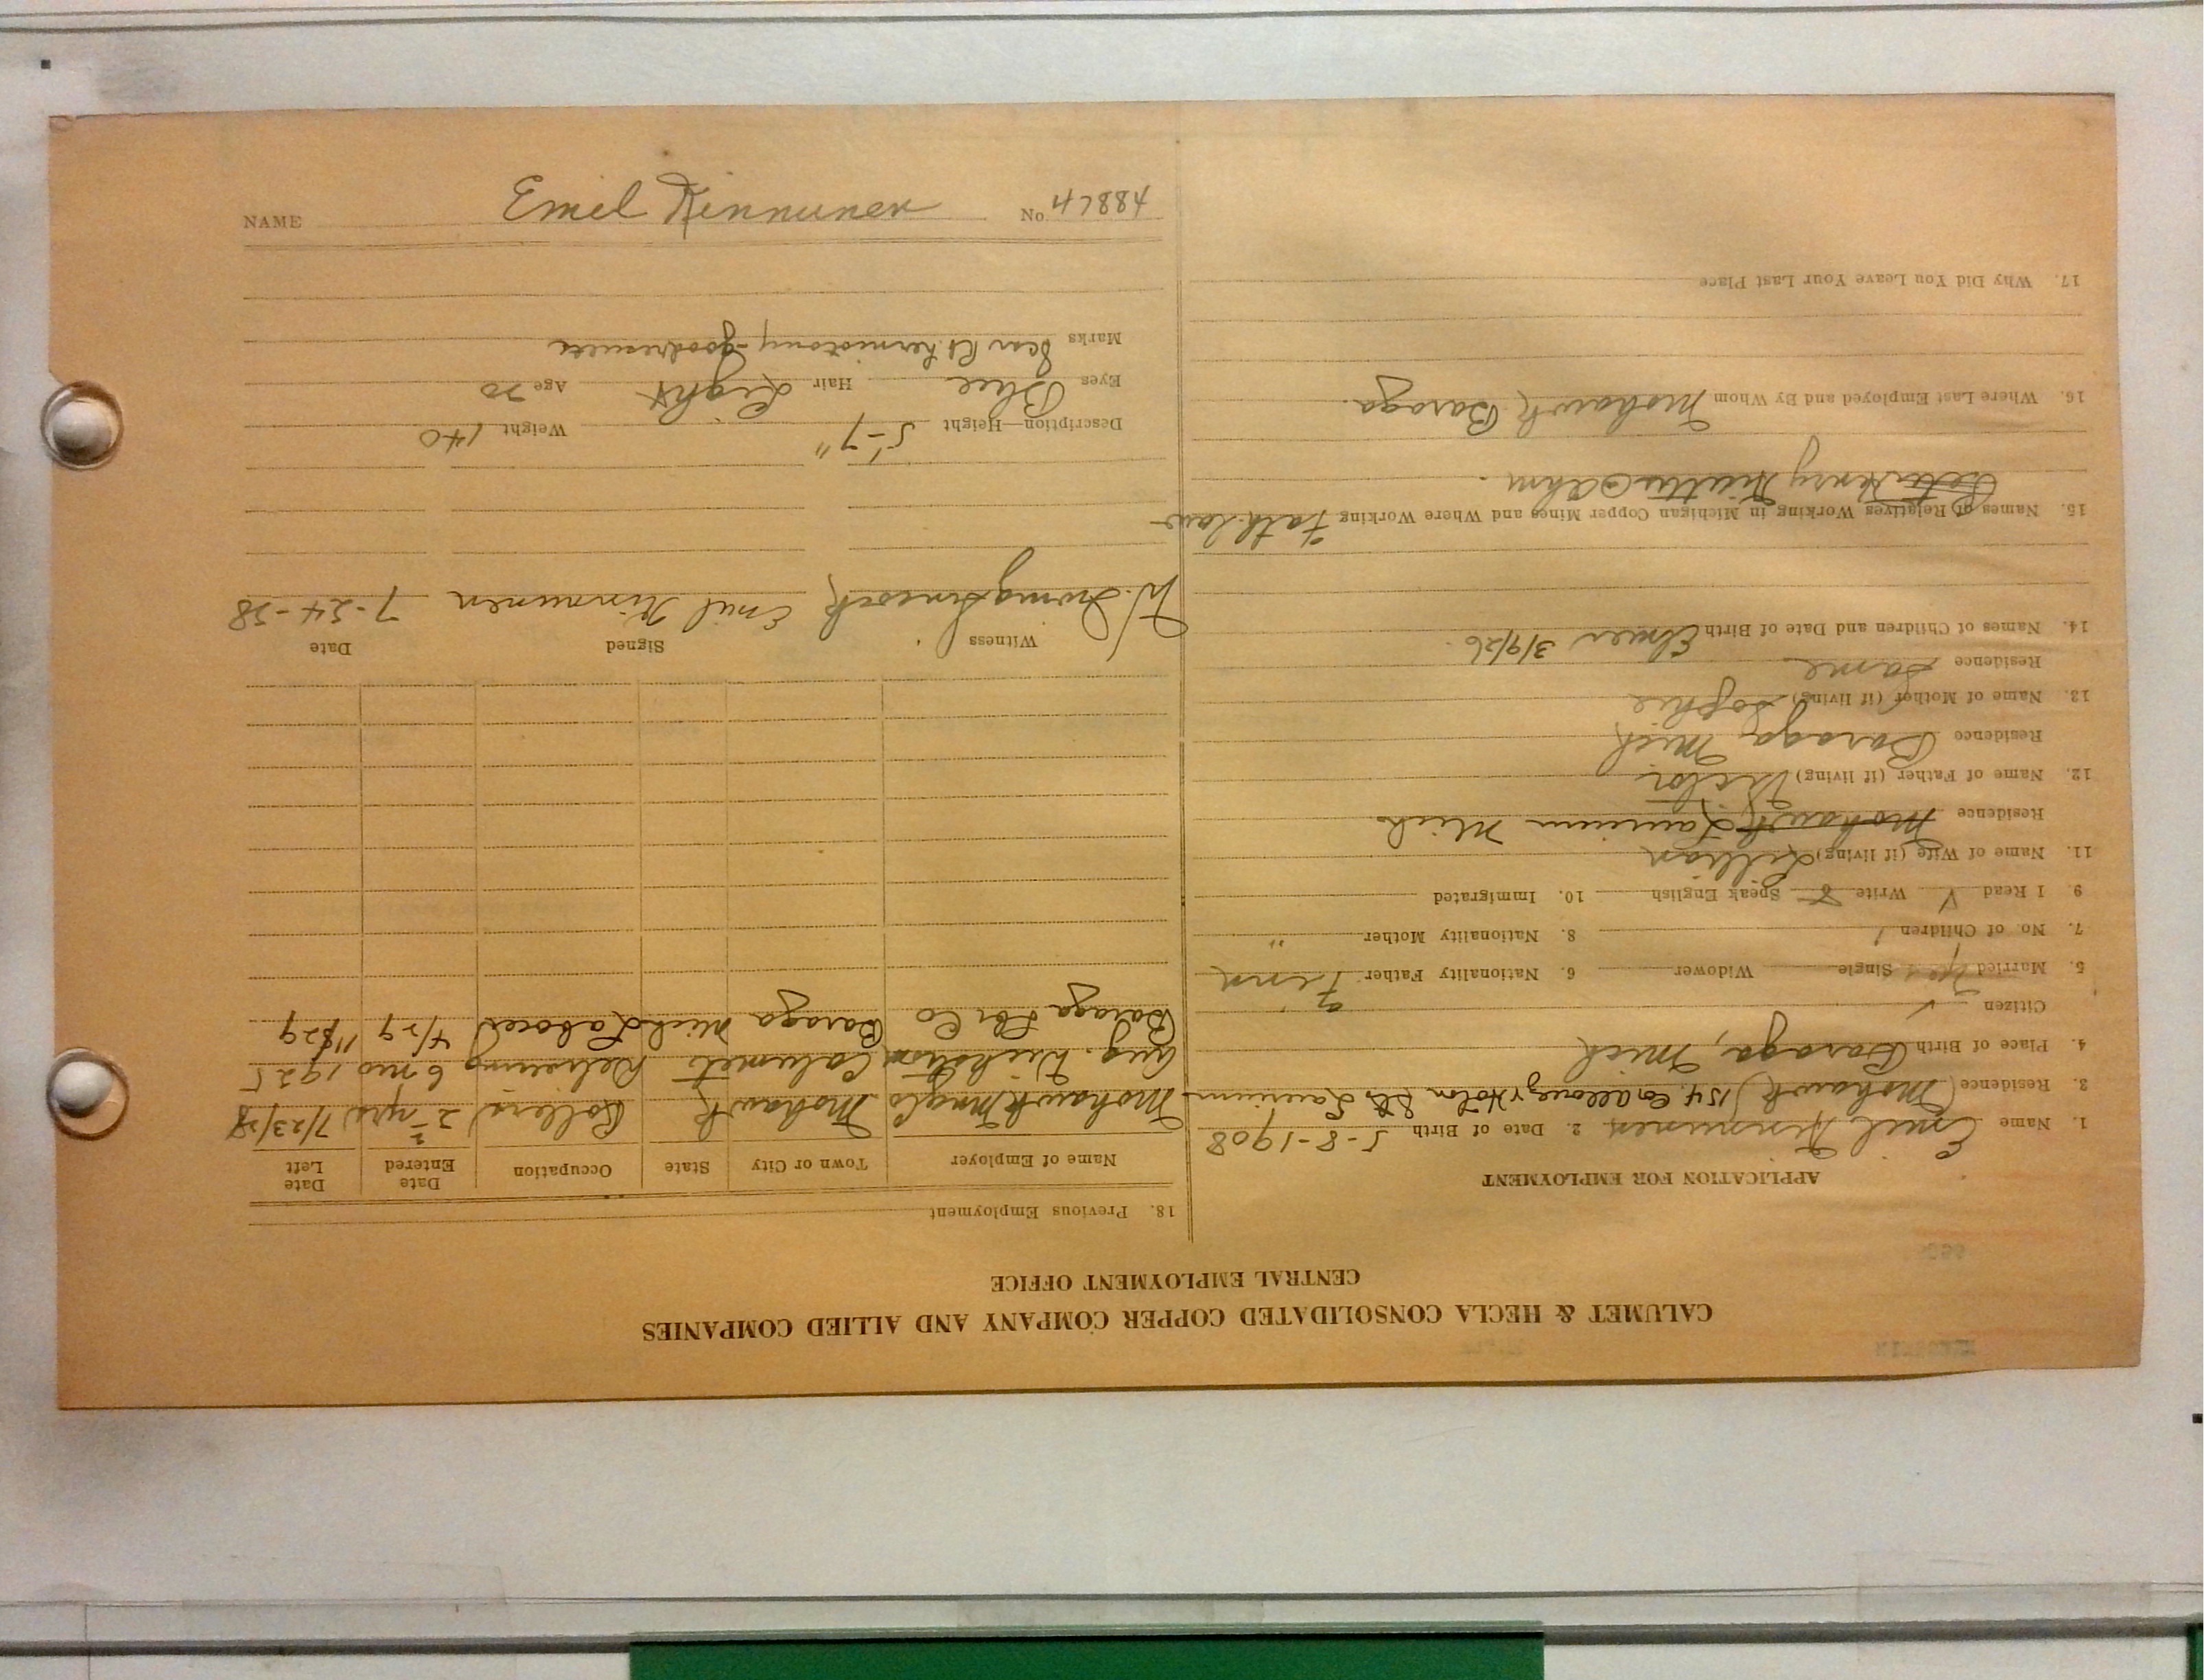 CALUMET & HECLA CONSOLIDATED COPPER COMPANY AND ALLIED COMPANIES
CENTRAL EMPLOYMENT OFFICE
APPLICATION FOR EMPLOYMENT
1. Name Emil Kinnunen 2. Date of Birth 5-8-1908
3. Residence (Mohawk) 154 Laurium
4. Place of Birth Baraga, Mich
Citizen ✓
5. Married Yes Single Widower 6. Nationality Father Finn
7. No. of Children 1 8. Nationality Mother "
9. I Read ✓ Write Speak English 10. Immigrated
11. Name of Wife (if living) Lillian
Residence Mohawk Laurium Mich
12. Name of Father (if living) Victor
Residence Baraga Mich
13. Name of Mother (if living) Sophie
Residence Same
14. Names of Children and Date of Birth Elmer 3/9/26
15. Names of Relatives Working in Michigan Copper Mines and Where Working Fath-law
Peter Henry Ahm.
16. Where Last Employed and By Whom Mohawk Baraga.
17. Why Did You Leave Your Last Place
18. Previous Employment
Name of Employer Town or City State Occupation Date Entered Date Left
Mohawk Mng Co Mohawk 2 yrs 7/23/28
Aug. Calumet Delivering 6 mo 1925
Baraga Lbr Co Baraga Mich Laborer 4/29 11/29
Witness Signed Date
W. Emil Kinnunen 7-24-28
Description—Height 5'-7" Weight 140
Eyes Blue Hair Light Age 20
Marks Scar Rt. herniotomy-good
NAME Emil Kinnunen No. 47884